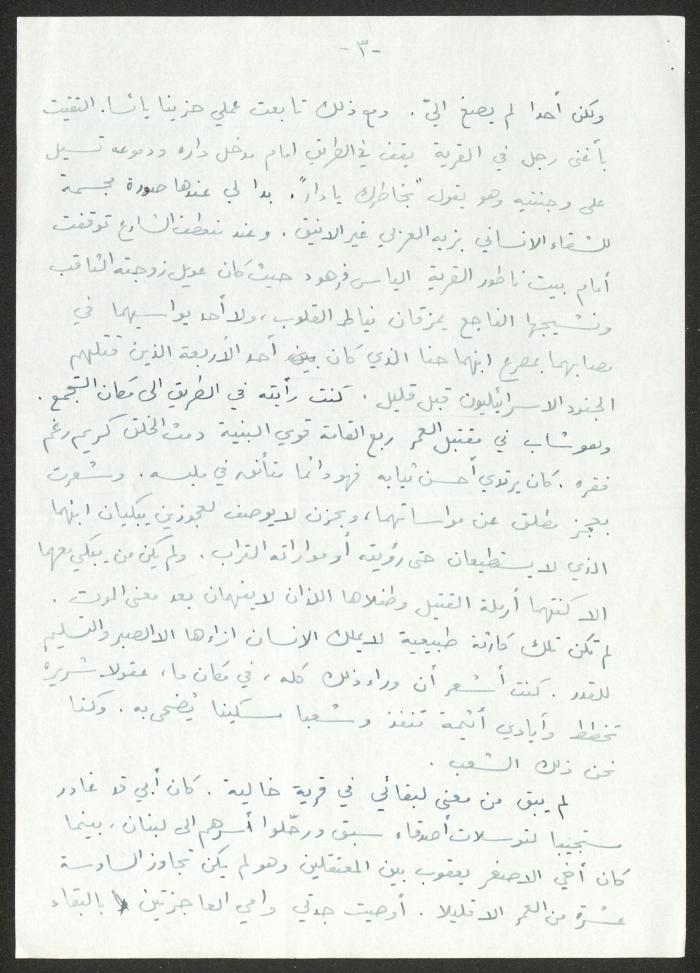 -٣-
ولكن أحدا لم يصغ اليّ. ومع ذلك تابعت عملي حزينا يائسا. التقيت
بأغنى رجل في القرية يقف في الطريق امام مدخل داره ودموعه تسيل
على وجنتيه وهو يقول "بخاطرك يا دار". بدا لي عندها صورة مجسمة
للشقاء الانساني بزيه العربي غير الانيق. وعند منعطف الشارع توقفت
أمام بيت ناطور القرية الياس فرهود حيث كان عويل زوجته الثاقب
ونشيجها الفاجع يمزقان نياط القلوب، ولا أحد يواسيهما في
مصابهما بمصرع ابنهما حنا الذي كان أحد الأربعة الذين قتلهم
الجنود الاسرائيليون قبل قليل. كنت رأيته في الطريق الى مكان التجمع.
وهو شاب في مقتبل العمر ربع القامة قوي البنية دمث الخلق كريم رغم
فقره. كان يرتدي أحسن ثيابه فهو دائما متأنق في ملبسه. وشعرت
بعجز مطلق عن مواساتهما، وبحزن لا يوصف لعجوزين يبكيان ابنهما
الذي لا يستطيعان حتى رؤيته أو مواراته التراب. ولم يكن من يبكي معهما
الا كنتهما أرملة القتيل وطفلاها اللذان لا يفهمان بعد معنى الموت.
لم تكن تلك كارثة طبيعية لا يملك الانسان ازاءها الا الصبر والتسليم
للقدر. كنت أشعر أن وراء ذلك كله، في مكان ما، عقولا شريرة
تخطط وأيادي أثيمة تنفذ وشعبا مسكينا يُضحى به. وكنا
نحن ذلك الشعب.
لم يبق من معنى لبقائي في قرية خالية. كان أبي قد غادر
مستجيبا لتوسلات أصدقاء سبق ورحّلوا أسرهم الى لبنان، بينما
كان أخي الاصغر يعقوب بين المعتقلين وهو لم يكن تجاوز السادسة
عشرة من العمر الا قليلا. أوصيت جدتي وامي العاجزتين بالبقاء